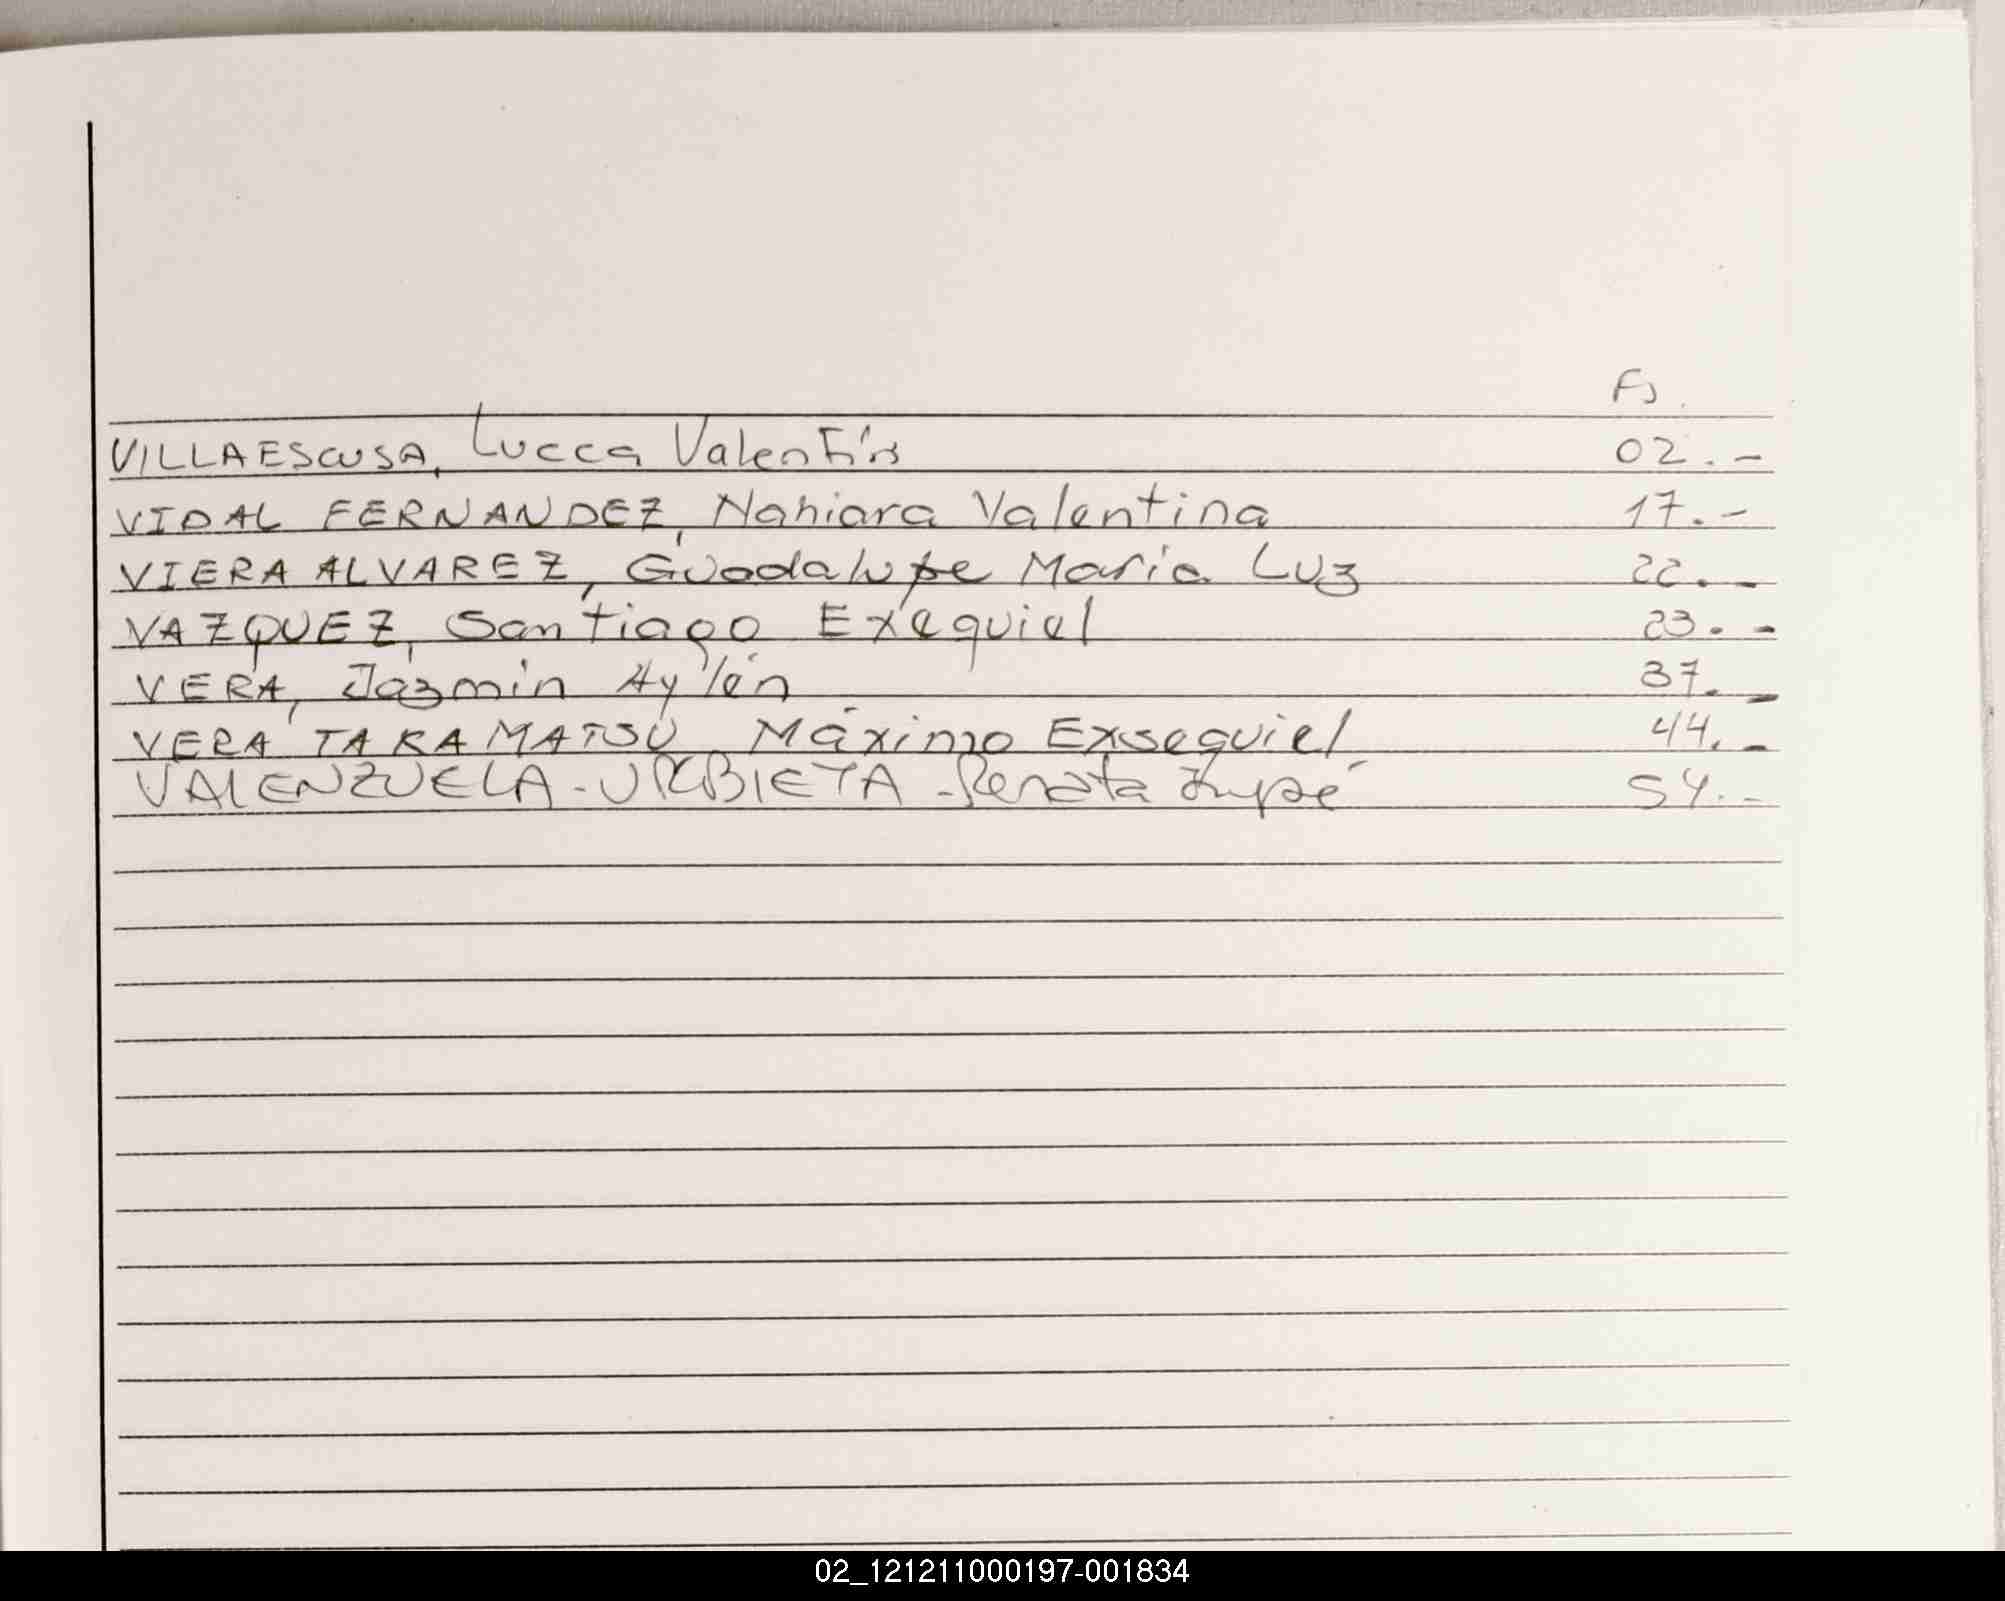 Fs.
VILLAESCUSA, Lucca Valentín 02.-
VIDAL FERNANDEZ, Nahiara Valentina 17.-
VIERA ALVAREZ, Guadalupe María Luz 22.-
VAZQUEZ, Santiago Exequiel 23.-
VERA, Jazmín Aylén 37.-
VERA TAKAMATSU, Máximo Exsequiel 44.-
VALENZUELA-URBIETA-Renata 54.-
02_121211000197-001834